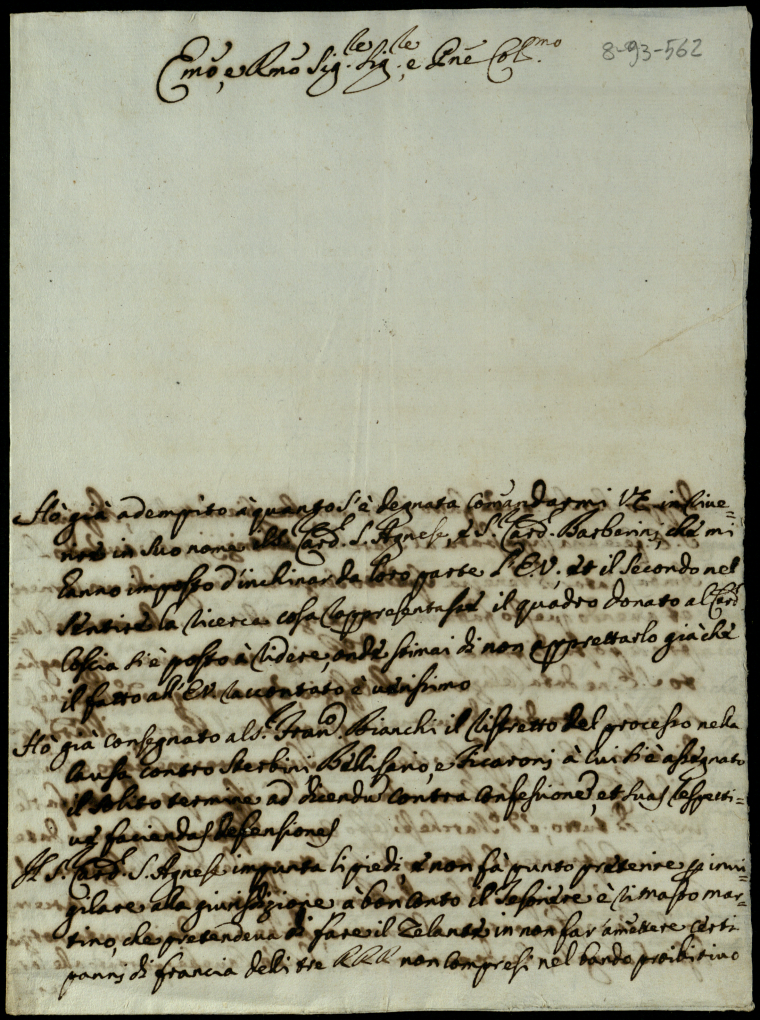 Emõ, e Rmõ Sig.re Sig.re, e Pne Col.mo
8-93-562
Hò già adempito à quanto s'è degnata comandarmi V.E. in rive=
rire in suo nome il Card. S. Agnese, e S.r Card. Barbarini, che mi
hanno imposto d'inchinar da loro parte l'E.V., et il secondo nel
sentire la ricerca cosa rappresentasse il quadro donato al Card.
Coscia si è posto à ridere, onde stimai di non appretarlo già che
il fatto all'E.V. raccontato è verissimo
Hò già consegnato al S.r Fran.co Bianchi il ristretto del processo nella
causa contro Sterbini Bellisario, e Ficaroni à cui si è assegnato
il solito termine ad dicendũ contra confessionem, et suas respecti=
vè faciendas defensiones
Il S.r Card. S. Agnese impunta li piedi, e non fà punto preterire per invi=
gilare alla giurisdizione à bon conto il Tesoriere è rimasto mar=
tino, che pretendeva di fare il zelante in non far amettere certi
panni di francia delli tre RRR non compresi nel bando proibitivo